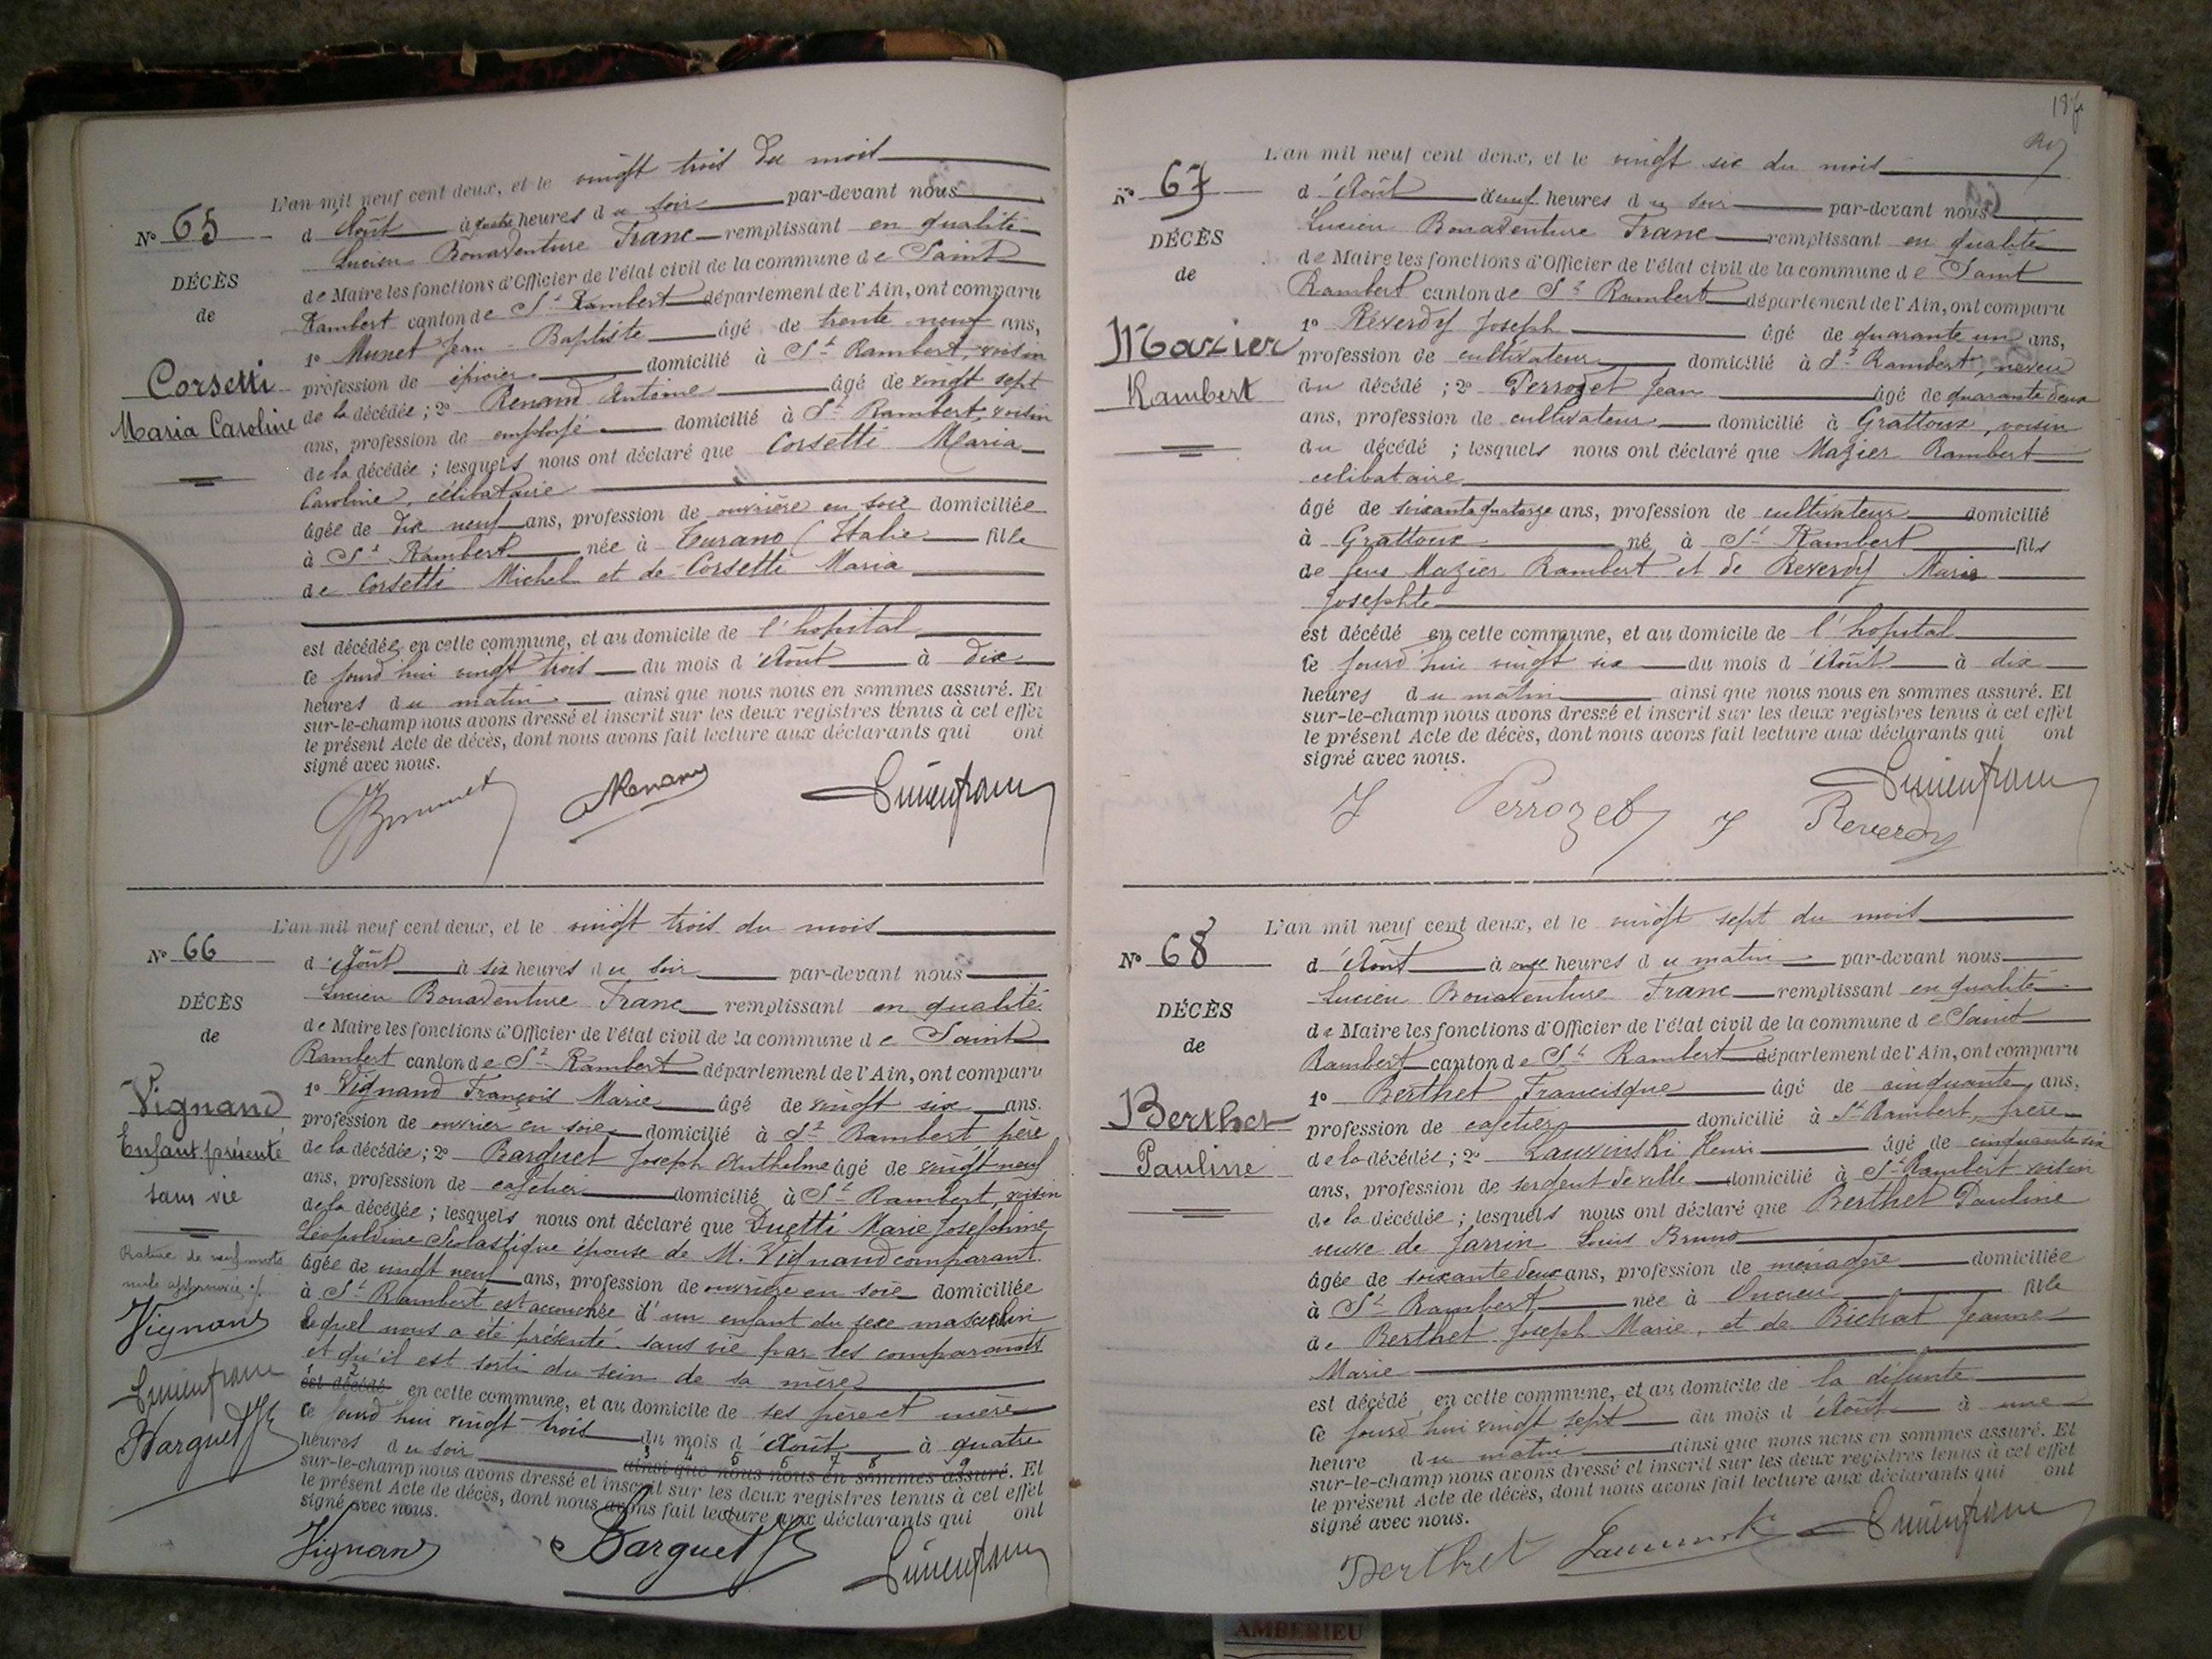 L'an mil neuf cent deux, et le vingt trois du mois
No 65
d'Août à quatre heures du soir par-devant nous
Lucien Bonaventure Franc remplissant en qualité
DÉCÈS
de
de Maire les fonctions d'Officier de l'état civil de la commune de Saint
Rambert canton de St Rambert département de l'Ain, ont comparu
1o Munet Jean-Baptiste âgé de trente neuf ans,
Corsetti
Maria Caroline
profession de épicier domicilié à St Rambert, voisin
de la décédée; 2o Renand Antoine âgé de vingt sept
ans, profession de employé domicilié à St Rambert, voisin
de la décédée; lesquels nous ont déclaré que Corsetti Maria
Caroline, célibataire
âgée de dix neuf ans, profession de ouvrière en soie domiciliée
à St Rambert née à Turano (Italie fille
de Corsetti Michel et de Corsetti Maria
est décédée en cette commune, et au domicile de l'hopital
ce jourd'hui vingt trois du mois d'Août à dix
heures du matin ainsi que nous nous en sommes assuré. Et
sur-le-champ nous avons dressé et inscrit sur les deux registres tenus à cet effet
le présent Acte de décès, dont nous avons fait lecture aux déclarants qui ont
signé avec nous.
Lucien franc
L'an mil neuf cent deux, et le vingt trois du mois
No 66
d'Août à six heures du soir par-devant nous
Lucien Bonaventure Franc remplissant en qualité
DÉCÈS
de
de Maire les fonctions d'Officier de l'état civil de la commune de Saint
Rambert canton de St Rambert département de l'Ain, ont comparu
1o Vignand François Marie âgé de vingt six ans.
Vignand
Enfant présenté
sans vie
profession de ouvrier en soie domicilié à St Rambert père
de la décédée; 2o Barquet Joseph Anthelme âgé de vingt neuf
ans, profession de cafetier domicilié à St Rambert, voisin
de la décédée; lesquels nous ont déclaré que Duetti Marie Joséphine
Léopoldine Scolastique épouse de M. Vignand comparant
Rature de neuf mots
nuls approuvée
âgée de vingt neuf ans, profession de ouvrière en soie domiciliée
à St Rambert est accouchée d'un enfant du sexe masculin
lequel nous a été présenté sans vie par les comparants
et qu'il est sorti du sein de sa mère
Vignand
Lucien franc
Barquet
1 2
est décédé en cette commune, et au domicile de ses père et mère
ce jourd'hui vingt-trois du mois d'Août à quatre
3 4 5 6 7 8 9
heures du soir ainsi que nous nous en sommes assuré. Et
sur-le-champ nous avons dressé et inscrit sur les deux registres tenus à cet effet
le présent Acte de décès, dont nous avons fait lecture aux déclarants qui ont
signé avec nous.
Vignand Barquet Lucien franc
L'an mil neuf cent deux, et le vingt six du mois
No 67
d'Août à neuf heures du soir par-devant nous
Lucien Bonaventure Franc remplissant en qualité
DÉCÈS
de
de Maire les fonctions d'Officier de l'état civil de la commune de Saint
Rambert canton de St Rambert département de l'Ain, ont comparu
1o Reverdy Joseph âgé de quarante un ans,
Mazier
Rambert
profession de cultivateur domicilié à St Rambert, neveu
du décédé; 2o Perrozet Jean âgé de quarante deux
ans, profession de cultivateur domicilié à Grattoux, voisin
du décédé; lesquels nous ont déclaré que Mazier Rambert
célibataire
âgé de soixante quatorze ans, profession de cultivateur domicilié
à Grattoux né à St Rambert fils
de feus Mazier Rambert et de Reverdy Marie
Josephte
est décédé en cette commune, et au domicile de l'hopital
ce jourd'hui vingt six du mois d'Août à dix
heures du matin ainsi que nous nous en sommes assuré. Et
sur-le-champ nous avons dressé et inscrit sur les deux registres tenus à cet effet
le présent Acte de décès, dont nous avons fait lecture aux déclarants qui ont
signé avec nous.
Lucien franc
J Perrozet J Reverdy
L'an mil neuf cent deux, et le vingt sept du mois
No 68
d'Août à onze heures du matin par-devant nous
Lucien Bonaventure Franc remplissant en qualité
DÉCÈS
de
de Maire les fonctions d'Officier de l'état civil de la commune de Saint
Rambert canton de St Rambert département de l'Ain, ont comparu
1o Berthet Francisque âgé de cinquante ans,
Berthet
Pauline
profession de cafetier domicilié à St Rambert, frère
de la décédée; 2o Lauxinski Henri âgé de cinquante six
ans, profession de sergent de ville domicilié à St Rambert voisin
de la décédée; lesquels nous ont déclaré que Berthet Pauline
veuve de Jarrin Louis Bruno
âgée de soixante deux ans, profession de ménagère domiciliée
à St Rambert née à Oncieu fille
de Berthet Joseph Marie, et de Bichat Jeanne
Marie
est décédé en cette commune, et au domicile de la défunte
ce jourd'hui vingt sept du mois d'Août à une
heure du matin ainsi que nous nous en sommes assuré. Et
sur-le-champ nous avons dressé et inscrit sur les deux registres tenus à cet effet
le présent Acte de décès, dont nous avons fait lecture aux déclarants qui ont
signé avec nous.
Berthet Lucien franc
AMBERIEU